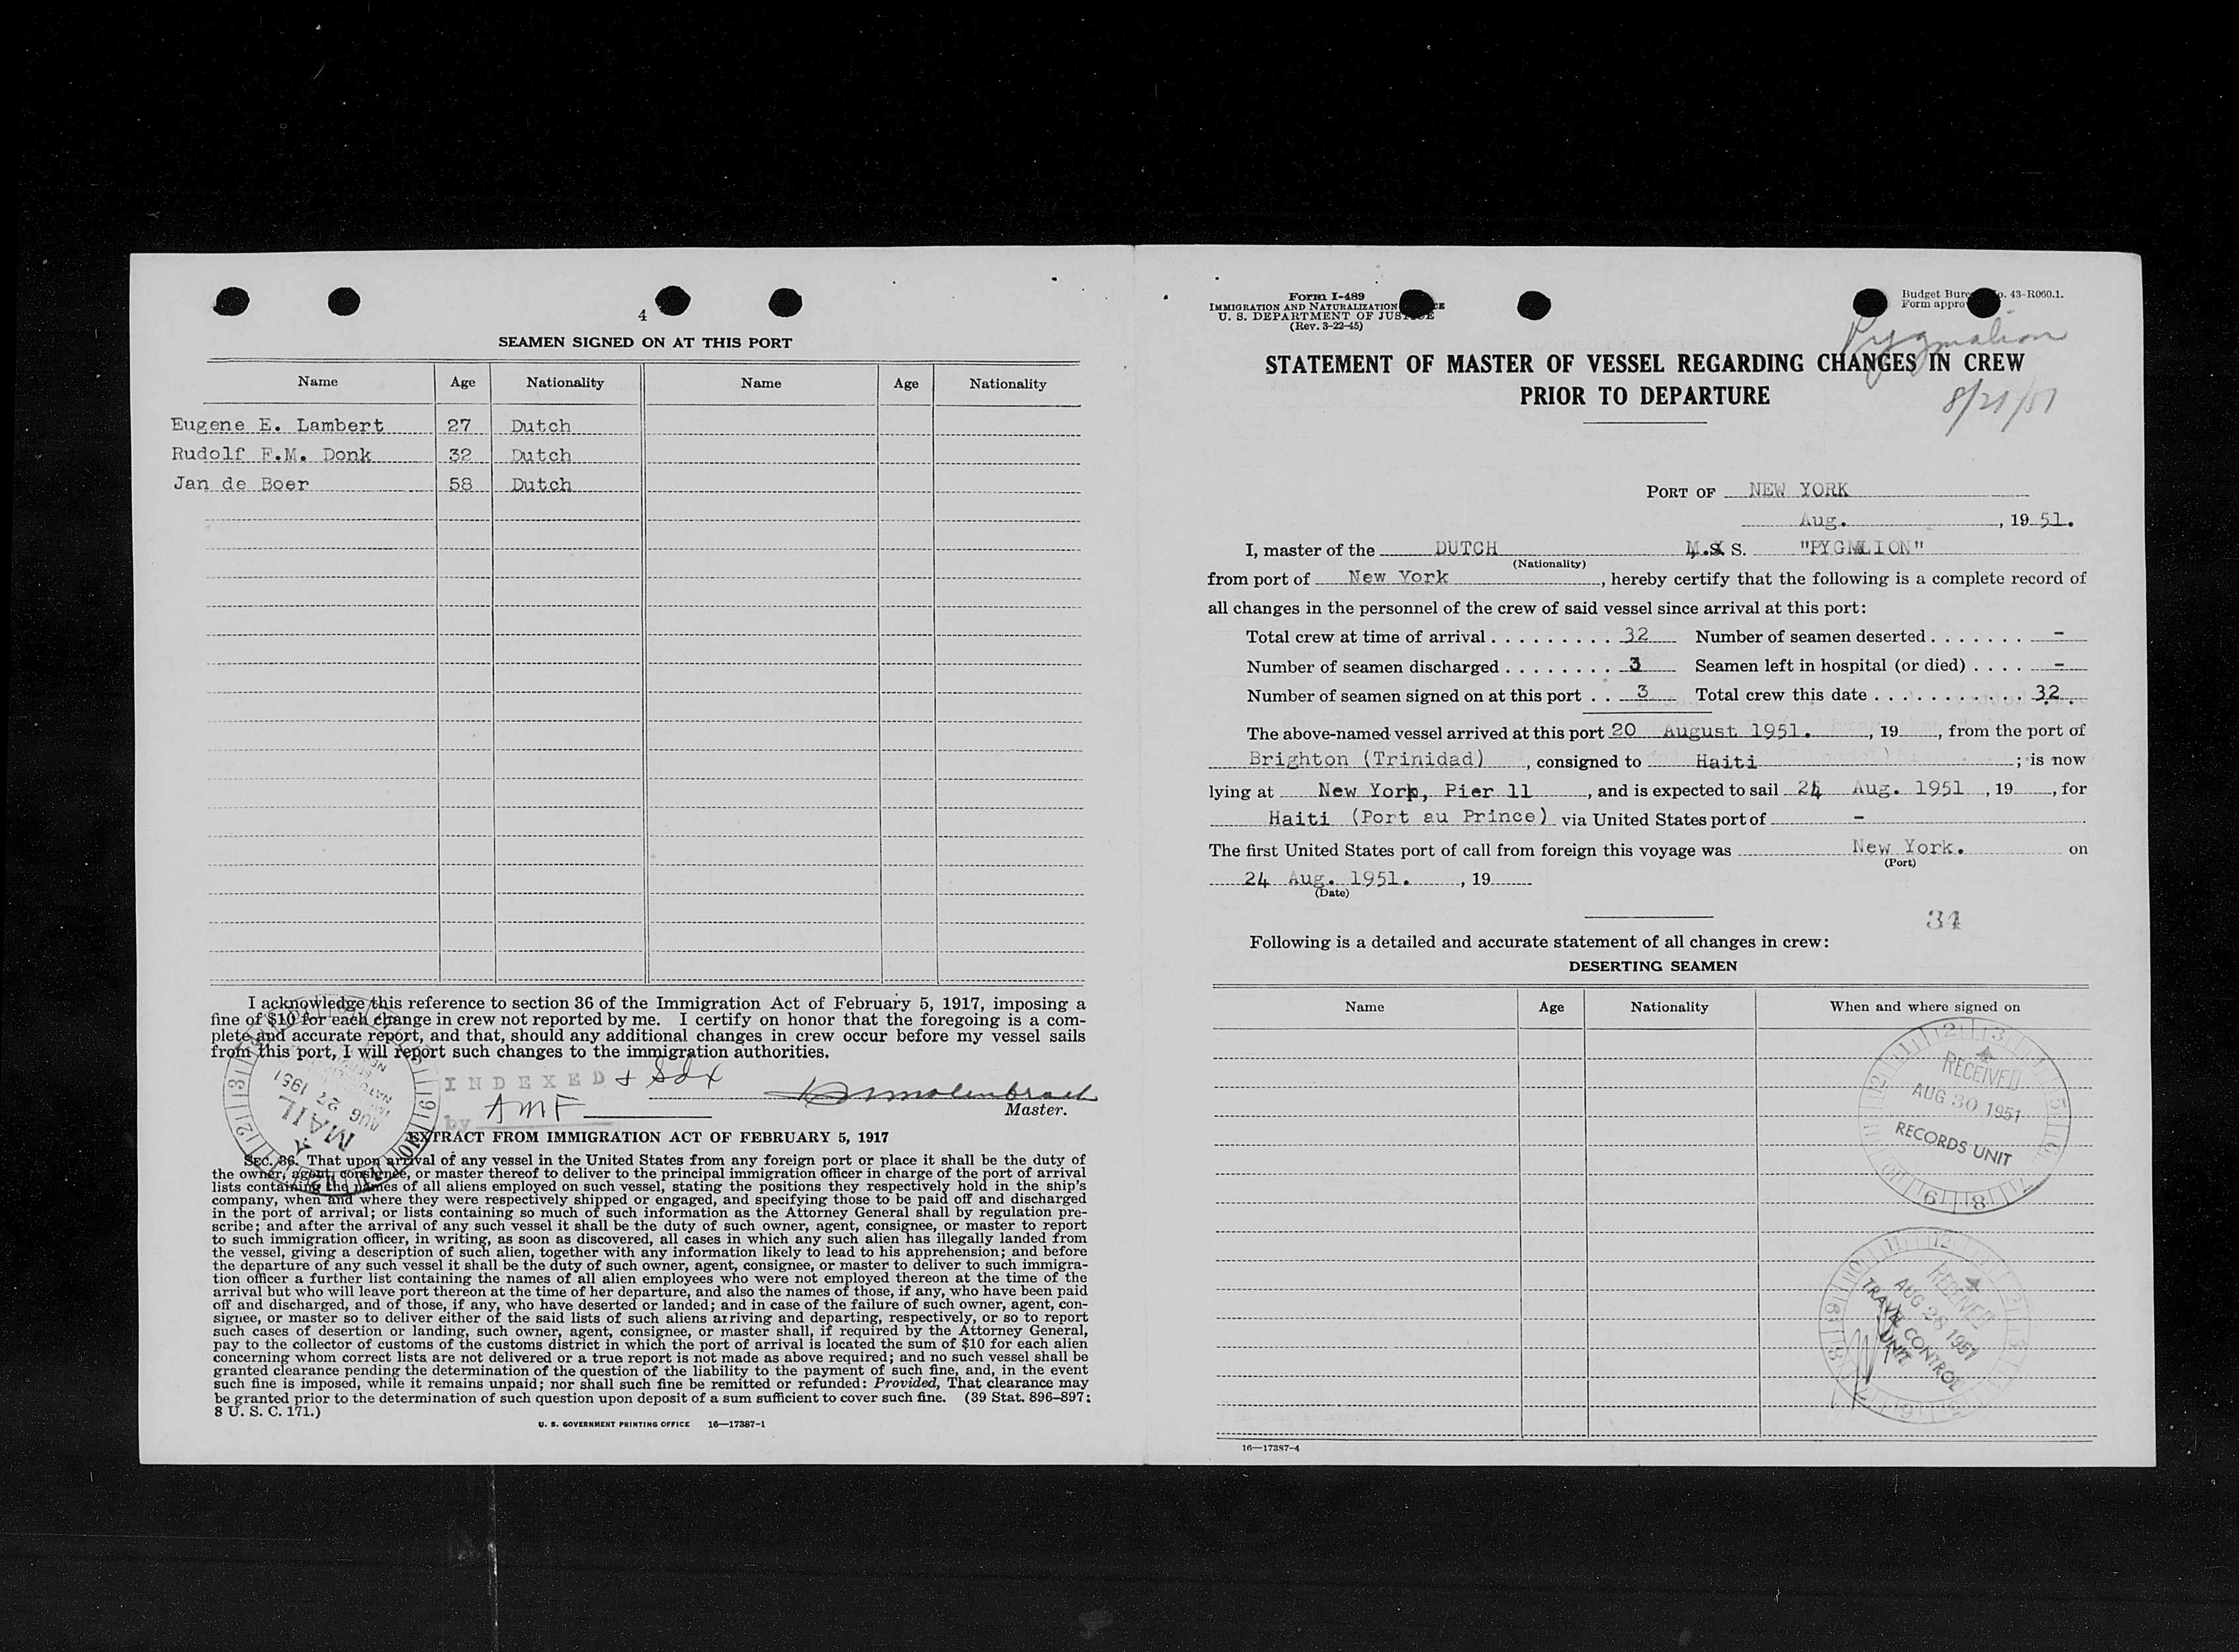 4
SEAMEN SIGNED ON AT THIS PORT
Name Age Nationality Name Age Nationality
Eugene E. Lambert 27 Dutch
Rudolf F.M. Donk 32 Dutch
Jan de Boer 58 Dutch
I acknowledge this reference to section 36 of the Immigration Act of February 5, 1917, imposing a
fine of $10 for each change in crew not reported by me. I certify on honor that the foregoing is a com-
plete and accurate report, and that, should any additional changes in crew occur before my vessel sails
from this port, I will report such changes to the immigration authorities.
INDEXED
by AMF
Master.
MAIL
AUG 27 1951
EXTRACT FROM IMMIGRATION ACT OF FEBRUARY 5, 1917
SEC. 36. That upon arrival of any vessel in the United States from any foreign port or place it shall be the duty of
the owner, agent, consignee, or master thereof to deliver to the principal immigration officer in charge of the port of arrival
lists containing the names of all aliens employed on such vessel, stating the positions they respectively hold in the ship's
company, when and where they were respectively shipped or engaged, and specifying those to be paid off and discharged
in the port of arrival; or lists containing so much of such information as the Attorney General shall by regulation pre-
scribe; and after the arrival of any such vessel it shall be the duty of such owner, agent, consignee, or master to report
to such immigration officer, in writing, as soon as discovered, all cases in which any such alien has illegally landed from
the vessel, giving a description of such alien, together with any information likely to lead to his apprehension; and before
the departure of any such vessel it shall be the duty of such owner, agent, consignee, or master to deliver to such immigra-
tion officer a further list containing the names of all alien employees who were not employed thereon at the time of the
arrival but who will leave port thereon at the time of her departure, and also the names of those, if any, who have been paid
off and discharged, and of those, if any, who have deserted or landed; and in case of the failure of such owner, agent, con-
signee, or master so to deliver either of the said lists of such aliens arriving and departing, respectively, or so to report
such cases of desertion or landing, such owner, agent, consignee, or master shall, if required by the Attorney General,
pay to the collector of customs of the customs district in which the port of arrival is located the sum of $10 for each alien
concerning whom correct lists are not delivered or a true report is not made as above required; and no such vessel shall be
granted clearance pending the determination of the question of the liability to the payment of such fine, and, in the event
such fine is imposed, while it remains unpaid; nor shall such fine be remitted or refunded: Provided, That clearance may
be granted prior to the determination of such question upon deposit of a sum sufficient to cover such fine. (39 Stat. 896–897;
8 U. S. C. 171.)
U. S. GOVERNMENT PRINTING OFFICE 16—17387-1
Form I-489
IMMIGRATION AND NATURALIZATION
U. S. DEPARTMENT OF JUSTICE
(Rev. 3-22-45)
Budget Bureau No. 43-R060.1.
Form appro
Pygmalion
STATEMENT OF MASTER OF VESSEL REGARDING CHANGES IN CREW
PRIOR TO DEPARTURE
PORT OF NEW YORK
Aug. , 19 51.
I, master of the DUTCH M.S. S. "PYGMALION"
(Nationality)
from port of New York , hereby certify that the following is a complete record of
all changes in the personnel of the crew of said vessel since arrival at this port:
Total crew at time of arrival . . . . . . . . . 32 Number of seamen deserted . . . . . . . –
Number of seamen discharged . . . . . . . . 3 Seamen left in hospital (or died) . . . . –
Number of seamen signed on at this port . . 3 Total crew this date . . . . . . . . . . . 32
The above-named vessel arrived at this port 20 August 1951. , 19 , from the port of
Brighton (Trinidad) , consigned to Haiti ; is now
lying at New York, Pier 11 , and is expected to sail 24 Aug. 1951 , 19 , for
Haiti (Port au Prince) via United States port of –
The first United States port of call from foreign this voyage was New York. on
(Port)
24 Aug. 1951. , 19
(Date)
34
Following is a detailed and accurate statement of all changes in crew:
DESERTING SEAMEN
Name Age Nationality When and where signed on
RECEIVED
AUG 30 1951
RECORDS UNIT
RECEIVED
AUG 28 1951
TRAVEL CONTROL
UNIT
16—17387-4